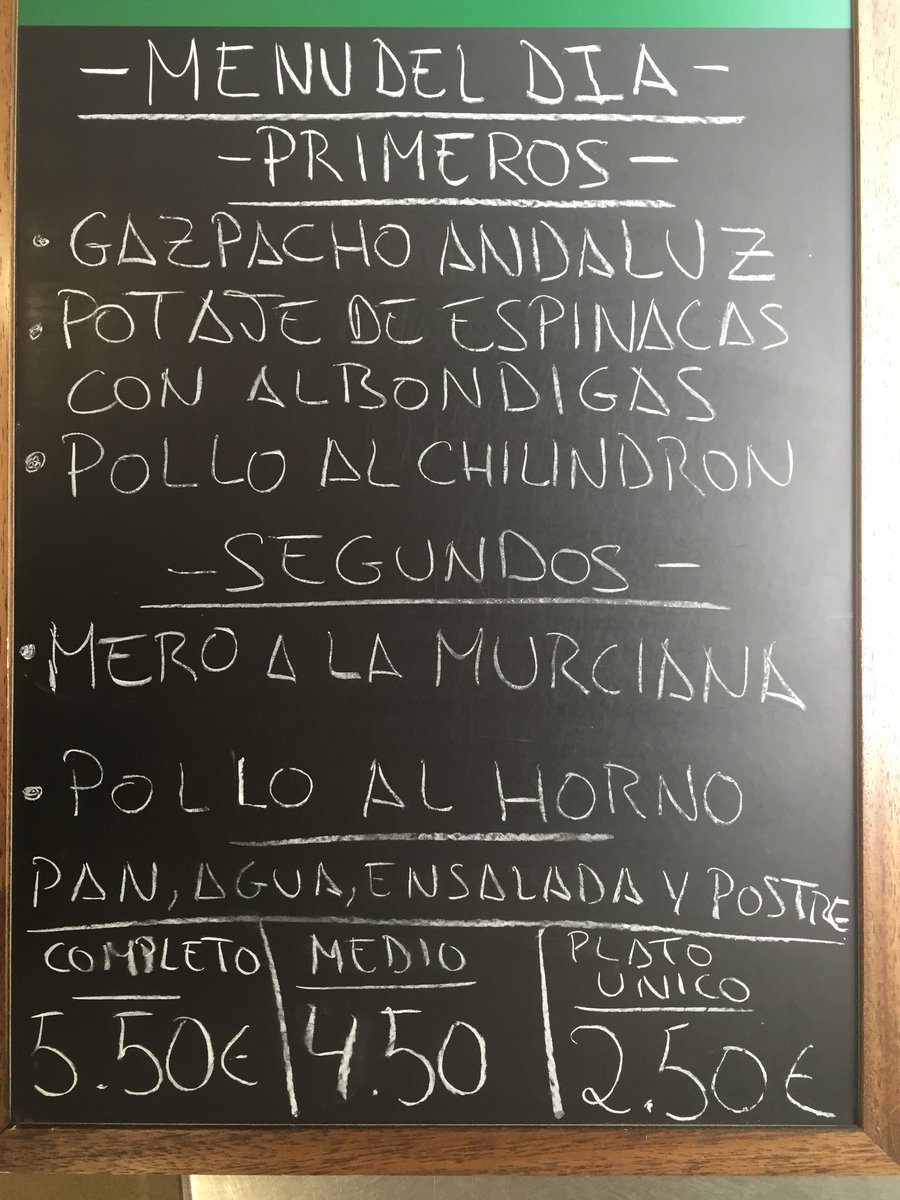 - MENU DEL DIA -
- PRIMEROS -
• GAZPACHO ANDALUZ
• POTAJE DE ESPINACAS
CON ALBONDIGAS
• POLLO AL CHILINDRON
- SEGUNDOS -
• MERO A LA MURCIANA
• POLLO AL HORNO
PAN, AGUA, ENSALADA Y POSTRE
COMPLETO
5.50€
MEDIO
4.50
PLATO
UNICO
2.50€